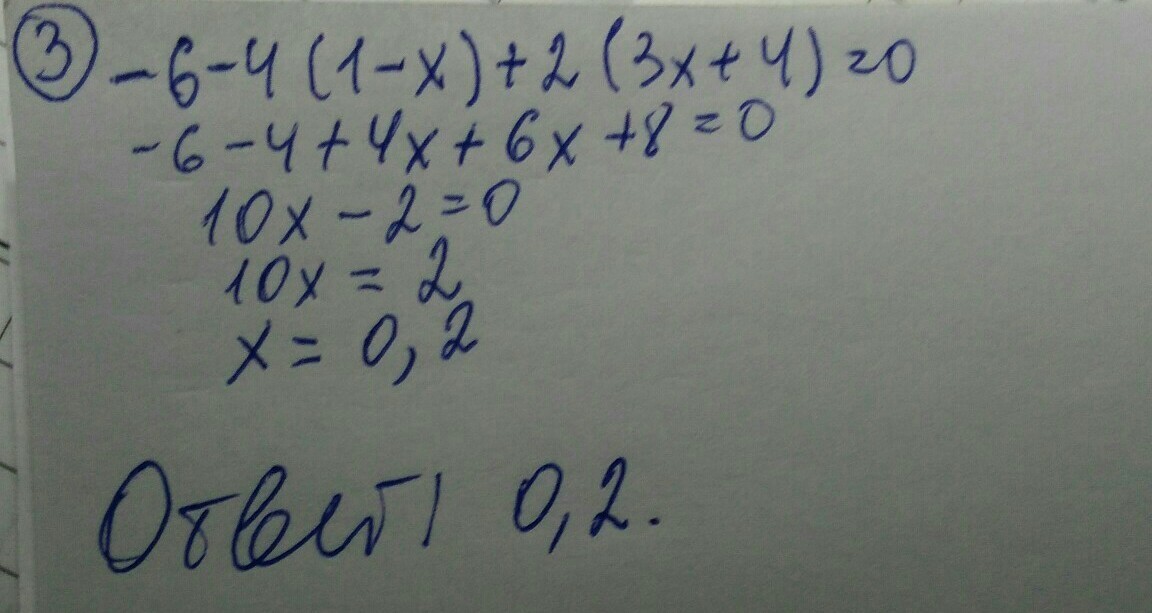 ③ -6-4(1-x)+2(3x+4)=0
-6-4+4x+6x+8=0
10x-2=0
10x=2
x=0,2
Ответ: 0,2.